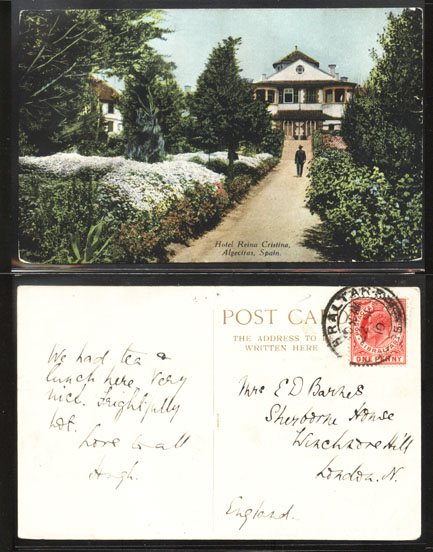 Hotel Reina Cristina,
Algeciras, Spain.
POST CA
THE ADDRESS TO
WRITTEN HERE
BRALTAR
GIBRALTAR
ONE PENNY
We had tea &
lunch here. Very
nice. Frightfully
hot.
Love to all
Hugh.
Mrs E D Barnes
Sherborne House
Winchmore Hill
London. N.
England.